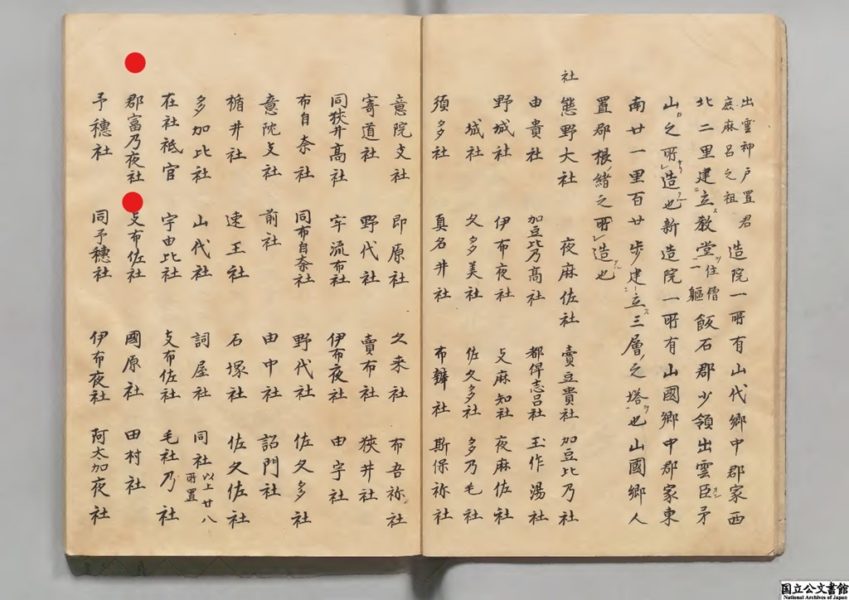 出雲神戸置君
底麻呂之祖 造院一所有山代郷中郡家西
北二里建立教堂 住僧一軀 飯石郡少領出雲臣弟
山之所造也新造院一所有山國郷中郡家東
南廿一里百廿歩建立三層之塔也山國郷人
置郡根緒之所造也
社
熊野大社 夜麻佐社 賣豆貴社 加豆比乃社
由貴社 加豆比乃高社 都俾志呂社 玉作湯社
野城社 伊布夜社 支麻知社 夜麻佐社
城社 久多美社 佐久多社 多乃毛社
須多社 真名井社 布辨社 斯保祢社
意陀支社 即原社 久来社 布吾祢社
寄道社 野代社 賣布社 狭井社
同狭井高社 宇流布社 伊布夜社 由宇社
布自奈社 同布自奈社 野代社 佐久多社
意陀支社 前社 田中社 詔門社
楯井社 速玉社 石塚社 佐久佐社
多加比社 山代社 調屋社 同社 以上廿八所置
在社祗官 宇由比社 支布佐社 毛社乃社
郡富乃夜社 支布佐社 國原社 田村社
予穂社 同予穂社 伊布夜社 阿太加夜社
国立公文書館
National Archives of Japan